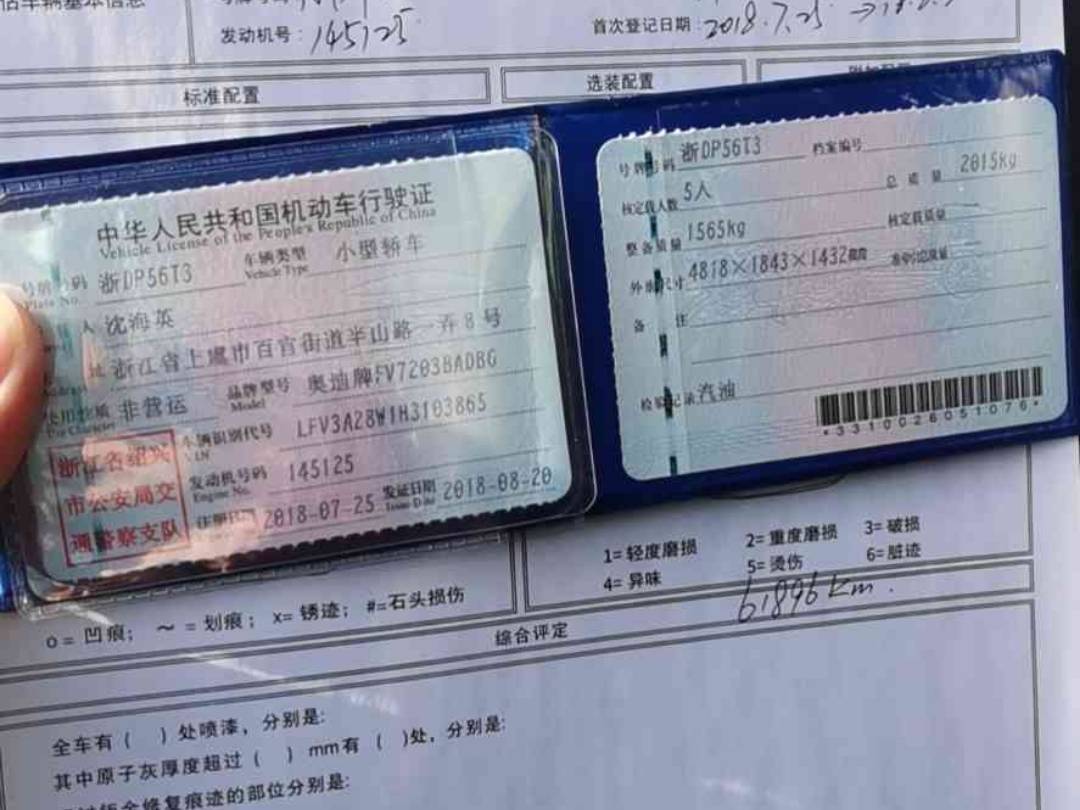 估车辆基本信息
发动机号：145125
首次登记日期：2018.7.25
标准配置
选装配置
中华人民共和国机动车行驶证
Vehicle License of the People's Republic of China
号牌号码 浙DP56T3 车辆类型 小型轿车
Plate No. Vehicle Type
人 沈海英
址 浙江省上虞市百官街道半山路一弄8号
使用性质 非营运 品牌型号 奥迪牌FV7203BADBG
Use Character Model
车辆识别代号 LFV3A28W1H3103865
VIN
浙江省绍兴
市公安局交
通警察支队
发动机号码 145125
Engine No.
注册日期 2018-07-25 发证日期 2018-08-20
Issue Date
号牌号码 浙DP56T3 档案编号
核定载人数 5人 总质量 2015kg
整备质量 1565kg 核定载质量
外廓尺寸 4818×1843×1432mm 准牵引总质量
备注
检验记录 汽油
*3310026051076*
1=轻度磨损 2=重度磨损 3=破损
4=异味 5=烫伤 6=脏迹
o=凹痕； ～=划痕； x=锈迹； #=石头损伤
61896km.
综合评定
全车有（ ）处喷漆，分别是:
其中原子灰厚度超过（ ）mm有（ ）处，分别是:
修复痕迹的部位分别是: